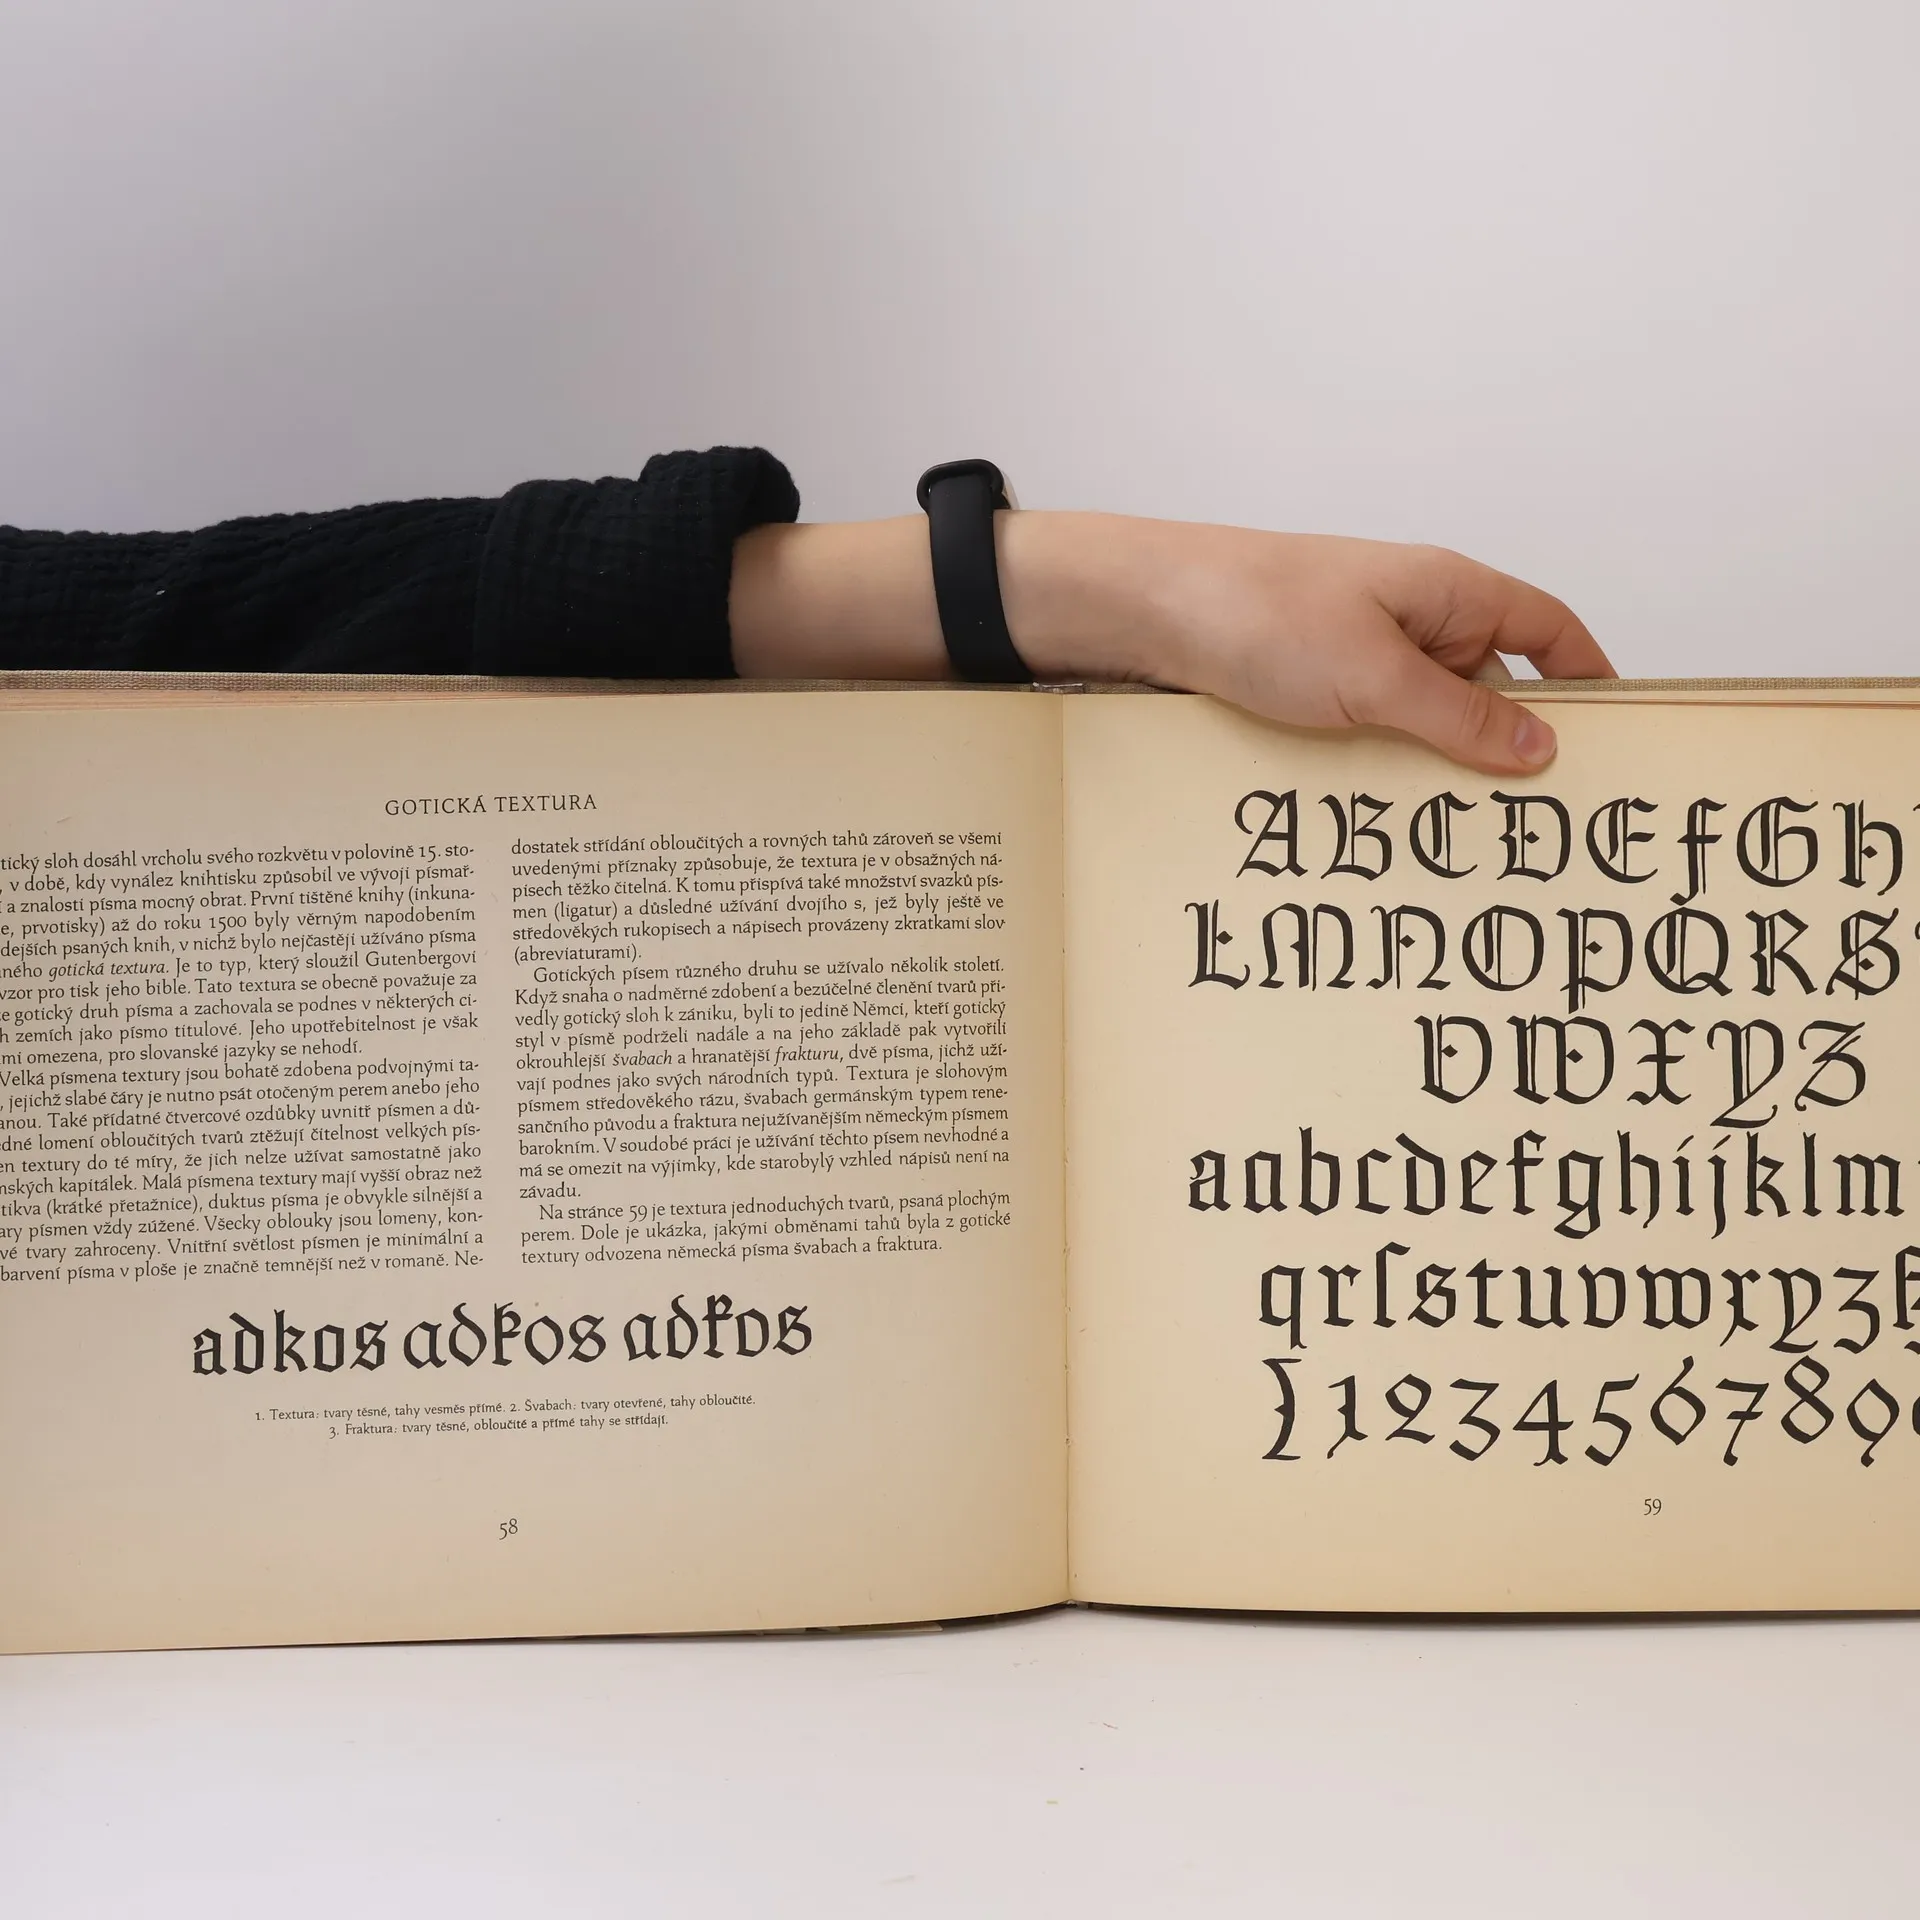 GOTICKÁ TEXTURA
tický sloh dosáhl vrcholu svého rozkvětu v polovině 15. sto-
, v době, kdy vynález knihtisku způsobil ve vývoji písmař-
í a znalosti písma mocný obrat. První tištěné knihy (inkuna-
e, prvotisky) až do roku 1500 byly věrným napodobením
dejších psaných knih, v nichž bylo nejčastěji užíváno písma
ného gotická textura. Je to typ, který sloužil Gutenbergovi
vzor pro tisk jeho bible. Tato textura se obecně považuje za
e gotický druh písma a zachovala se podnes v některých ci-
h zemích jako písmo titulové. Jeho upotřebitelnost je však
mi omezena, pro slovanské jazyky se nehodí.
Velká písmena textury jsou bohatě zdobena podvojnými ta-
, jejichž slabé čáry je nutno psát otočeným perem anebo jeho
anou. Také přídatné čtvercové ozdůbky uvnitř písmen a dů-
edné lomení obloučitých tvarů ztěžují čitelnost velkých pís-
en textury do té míry, že jich nelze užívat samostatně jako
nských kapitálek. Malá písmena textury mají vyšší obraz než
tikva (krátké přetažnice), duktus písma je obvykle silnější a
ary písmen vždy zúžené. Všecky oblouky jsou lomeny, kon-
vé tvary zahroceny. Vnitřní světlost písmen je minimální a
barvení písma v ploše je značně temnější než v romaně. Ne-
dostatek střídání obloučitých a rovných tahů zároveň se všemi
uvedenými příznaky způsobuje, že textura je v obsažných ná-
pisech těžko čitelná. K tomu přispívá také množství svazků pís-
men (ligatur) a důsledné užívání dvojího s, jež byly ještě ve
středověkých rukopisech a nápisech provázeny zkratkami slov
(abreviaturami).
Gotických písem různého druhu se užívalo několik století.
Když snaha o nadměrné zdobení a bezúčelné členění tvarů při-
vedly gotický sloh k zániku, byli to jedině Němci, kteří gotický
styl v písmě podrželi nadále a na jeho základě pak vytvořili
okrouhlejší švabach a hranatější frakturu, dvě písma, jichž uží-
vají podnes jako svých národních typů. Textura je slohovým
písmem středověkého rázu, švabach germánským typem rene-
sančního původu a fraktura nejužívanějším německým písmem
barokním. V soudobé práci je užívání těchto písem nevhodné a
má se omezit na výjimky, kde starobylý vzhled nápisů není na
závadu.
Na stránce 59 je textura jednoduchých tvarů, psaná plochým
perem. Dole je ukázka, jakými obměnami tahů byla z gotické
textury odvozena německá písma švabach a fraktura.
adkos adkos adkos
1. Textura: tvary těsné, tahy vesměs přímé. 2. Švabach: tvary otevřené, tahy obloučité.
3. Fraktura: tvary těsné, obloučité a přímé tahy se střídají.
58
ABCDEFGH
LMNOPQRS
VWXYZ
aabcdefghijklm
qrſstuvwxyz
1234567890
59